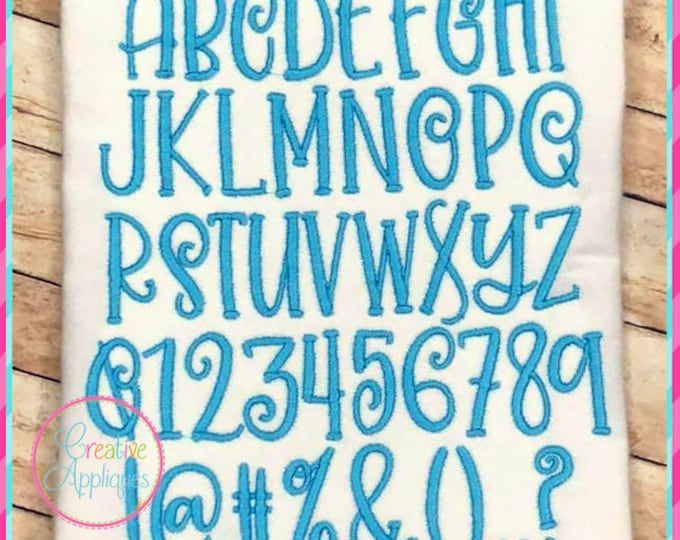 ABCDEFGHI
JKLMNOPQ
RSTUVWXYZ
0123456789
!@#%&()...?
Creative
Appliques